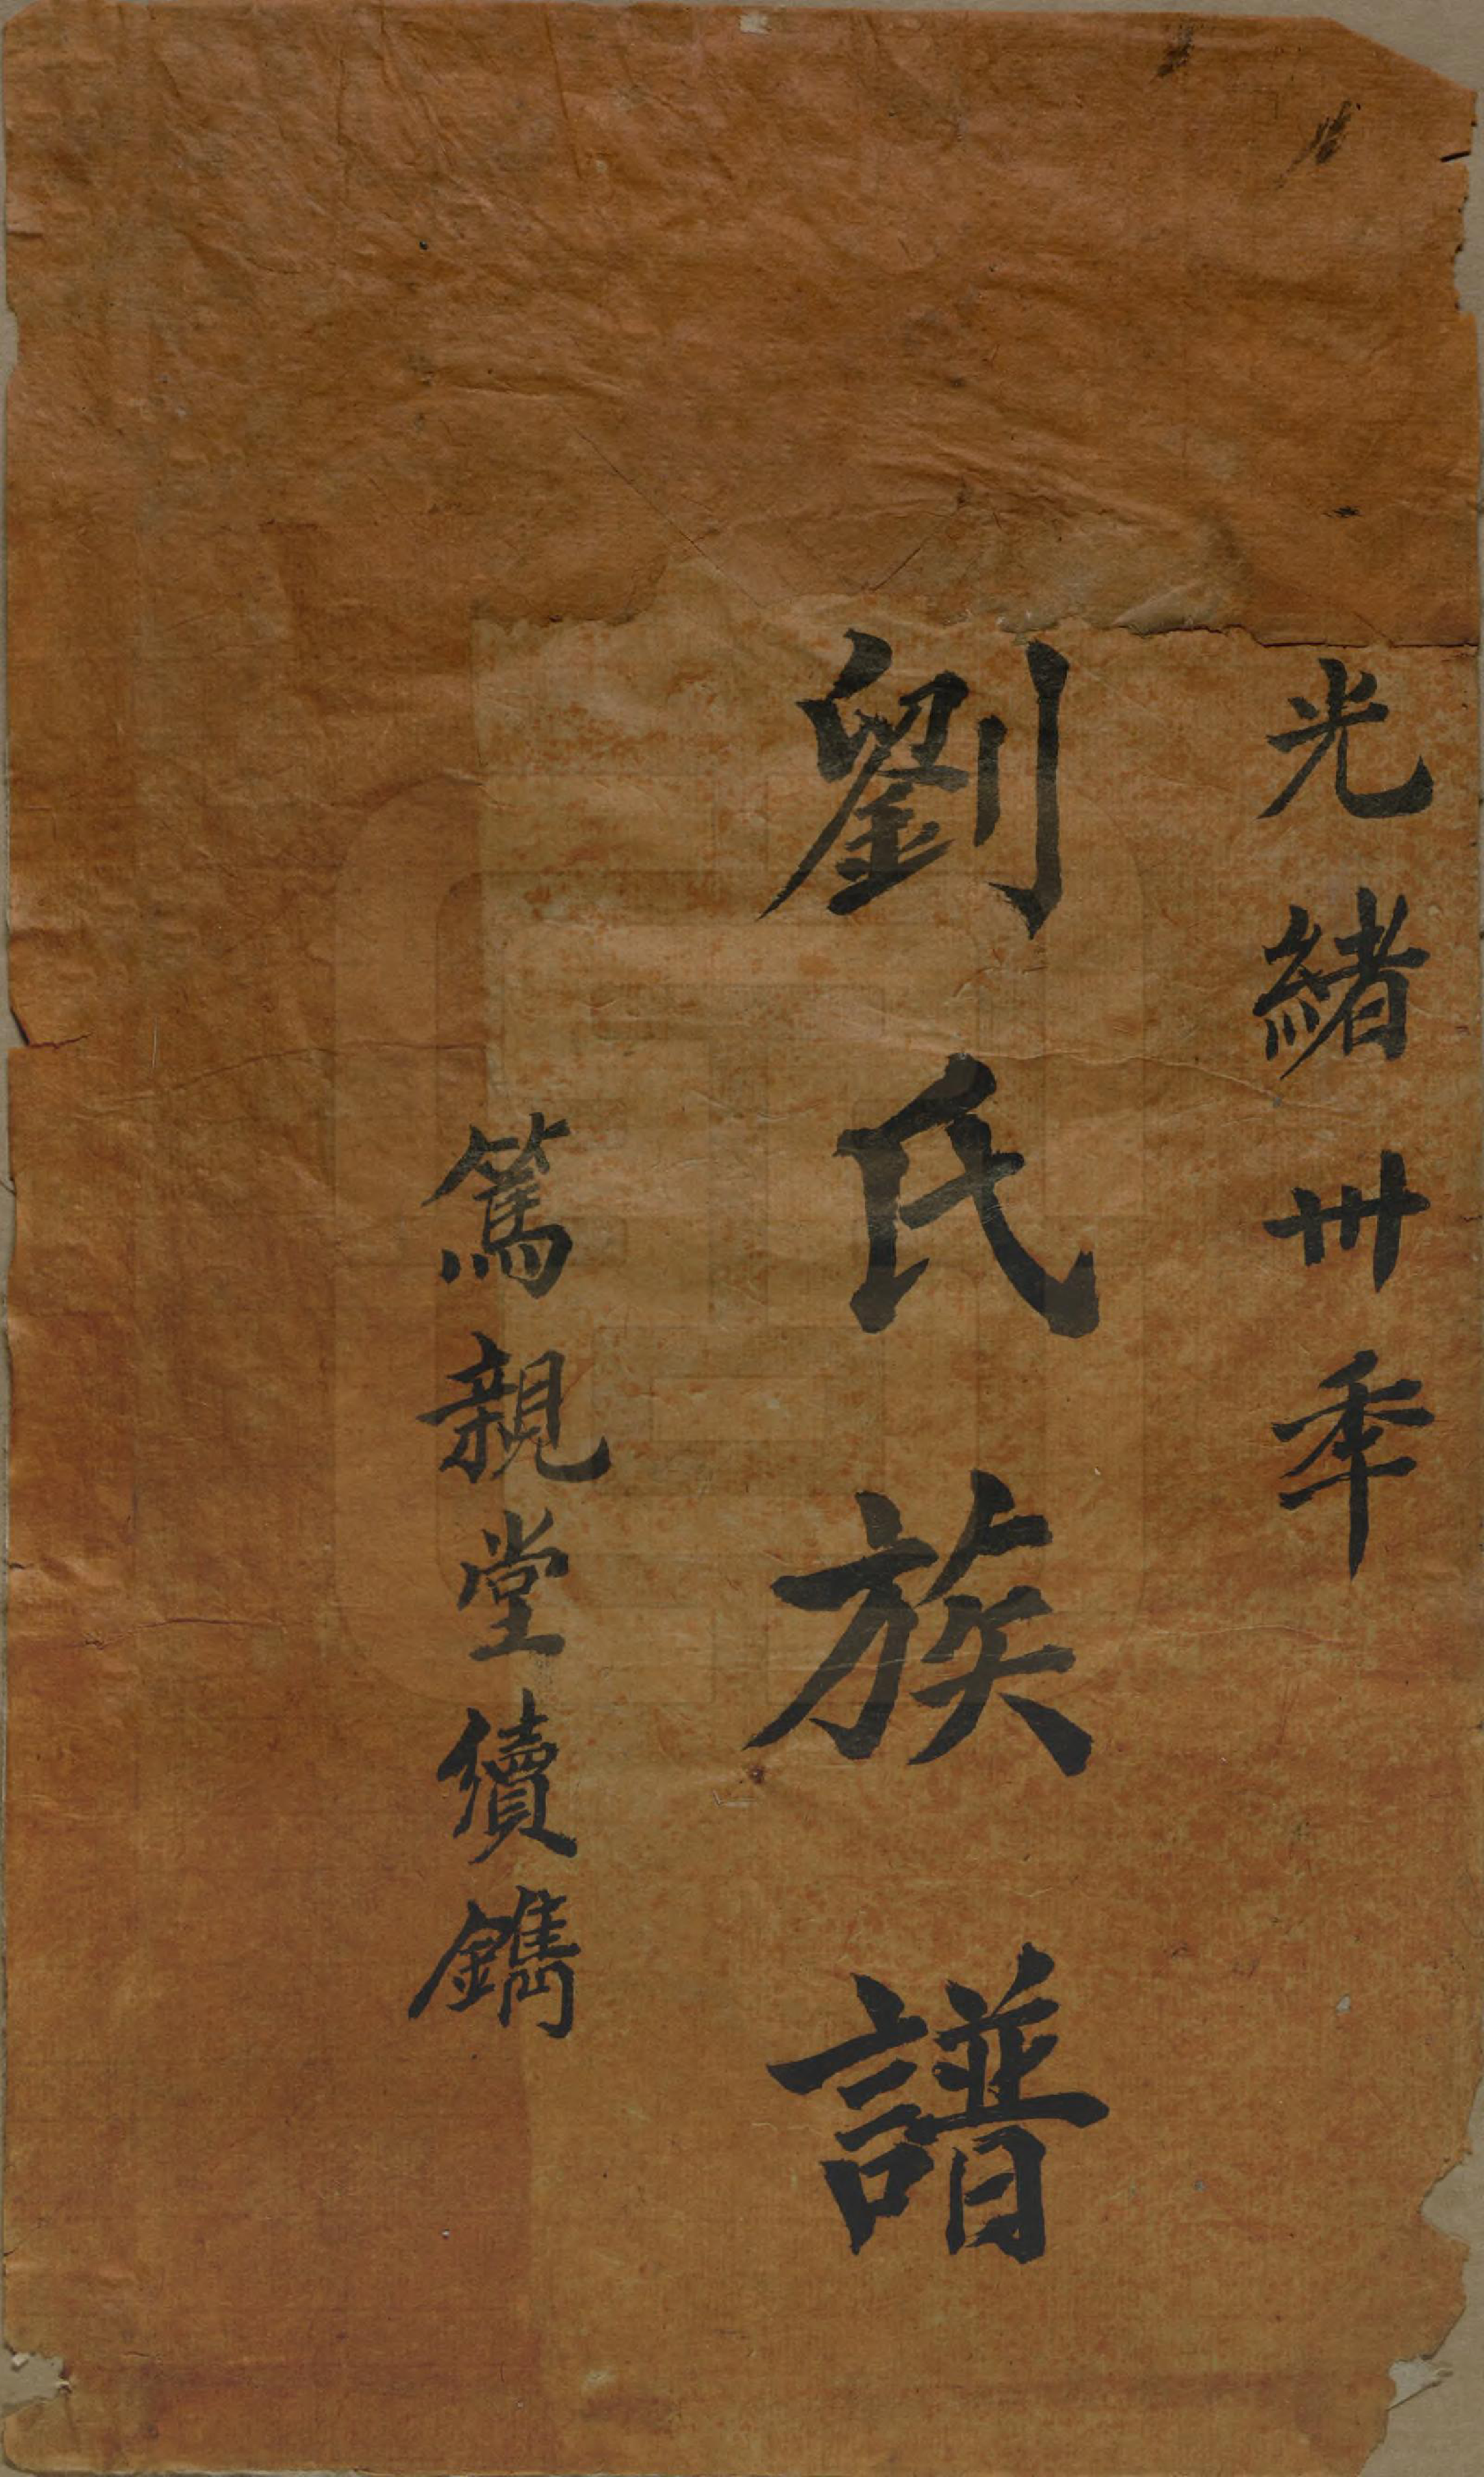 光緒卅季
劉氏族譜
篤親堂續鐫